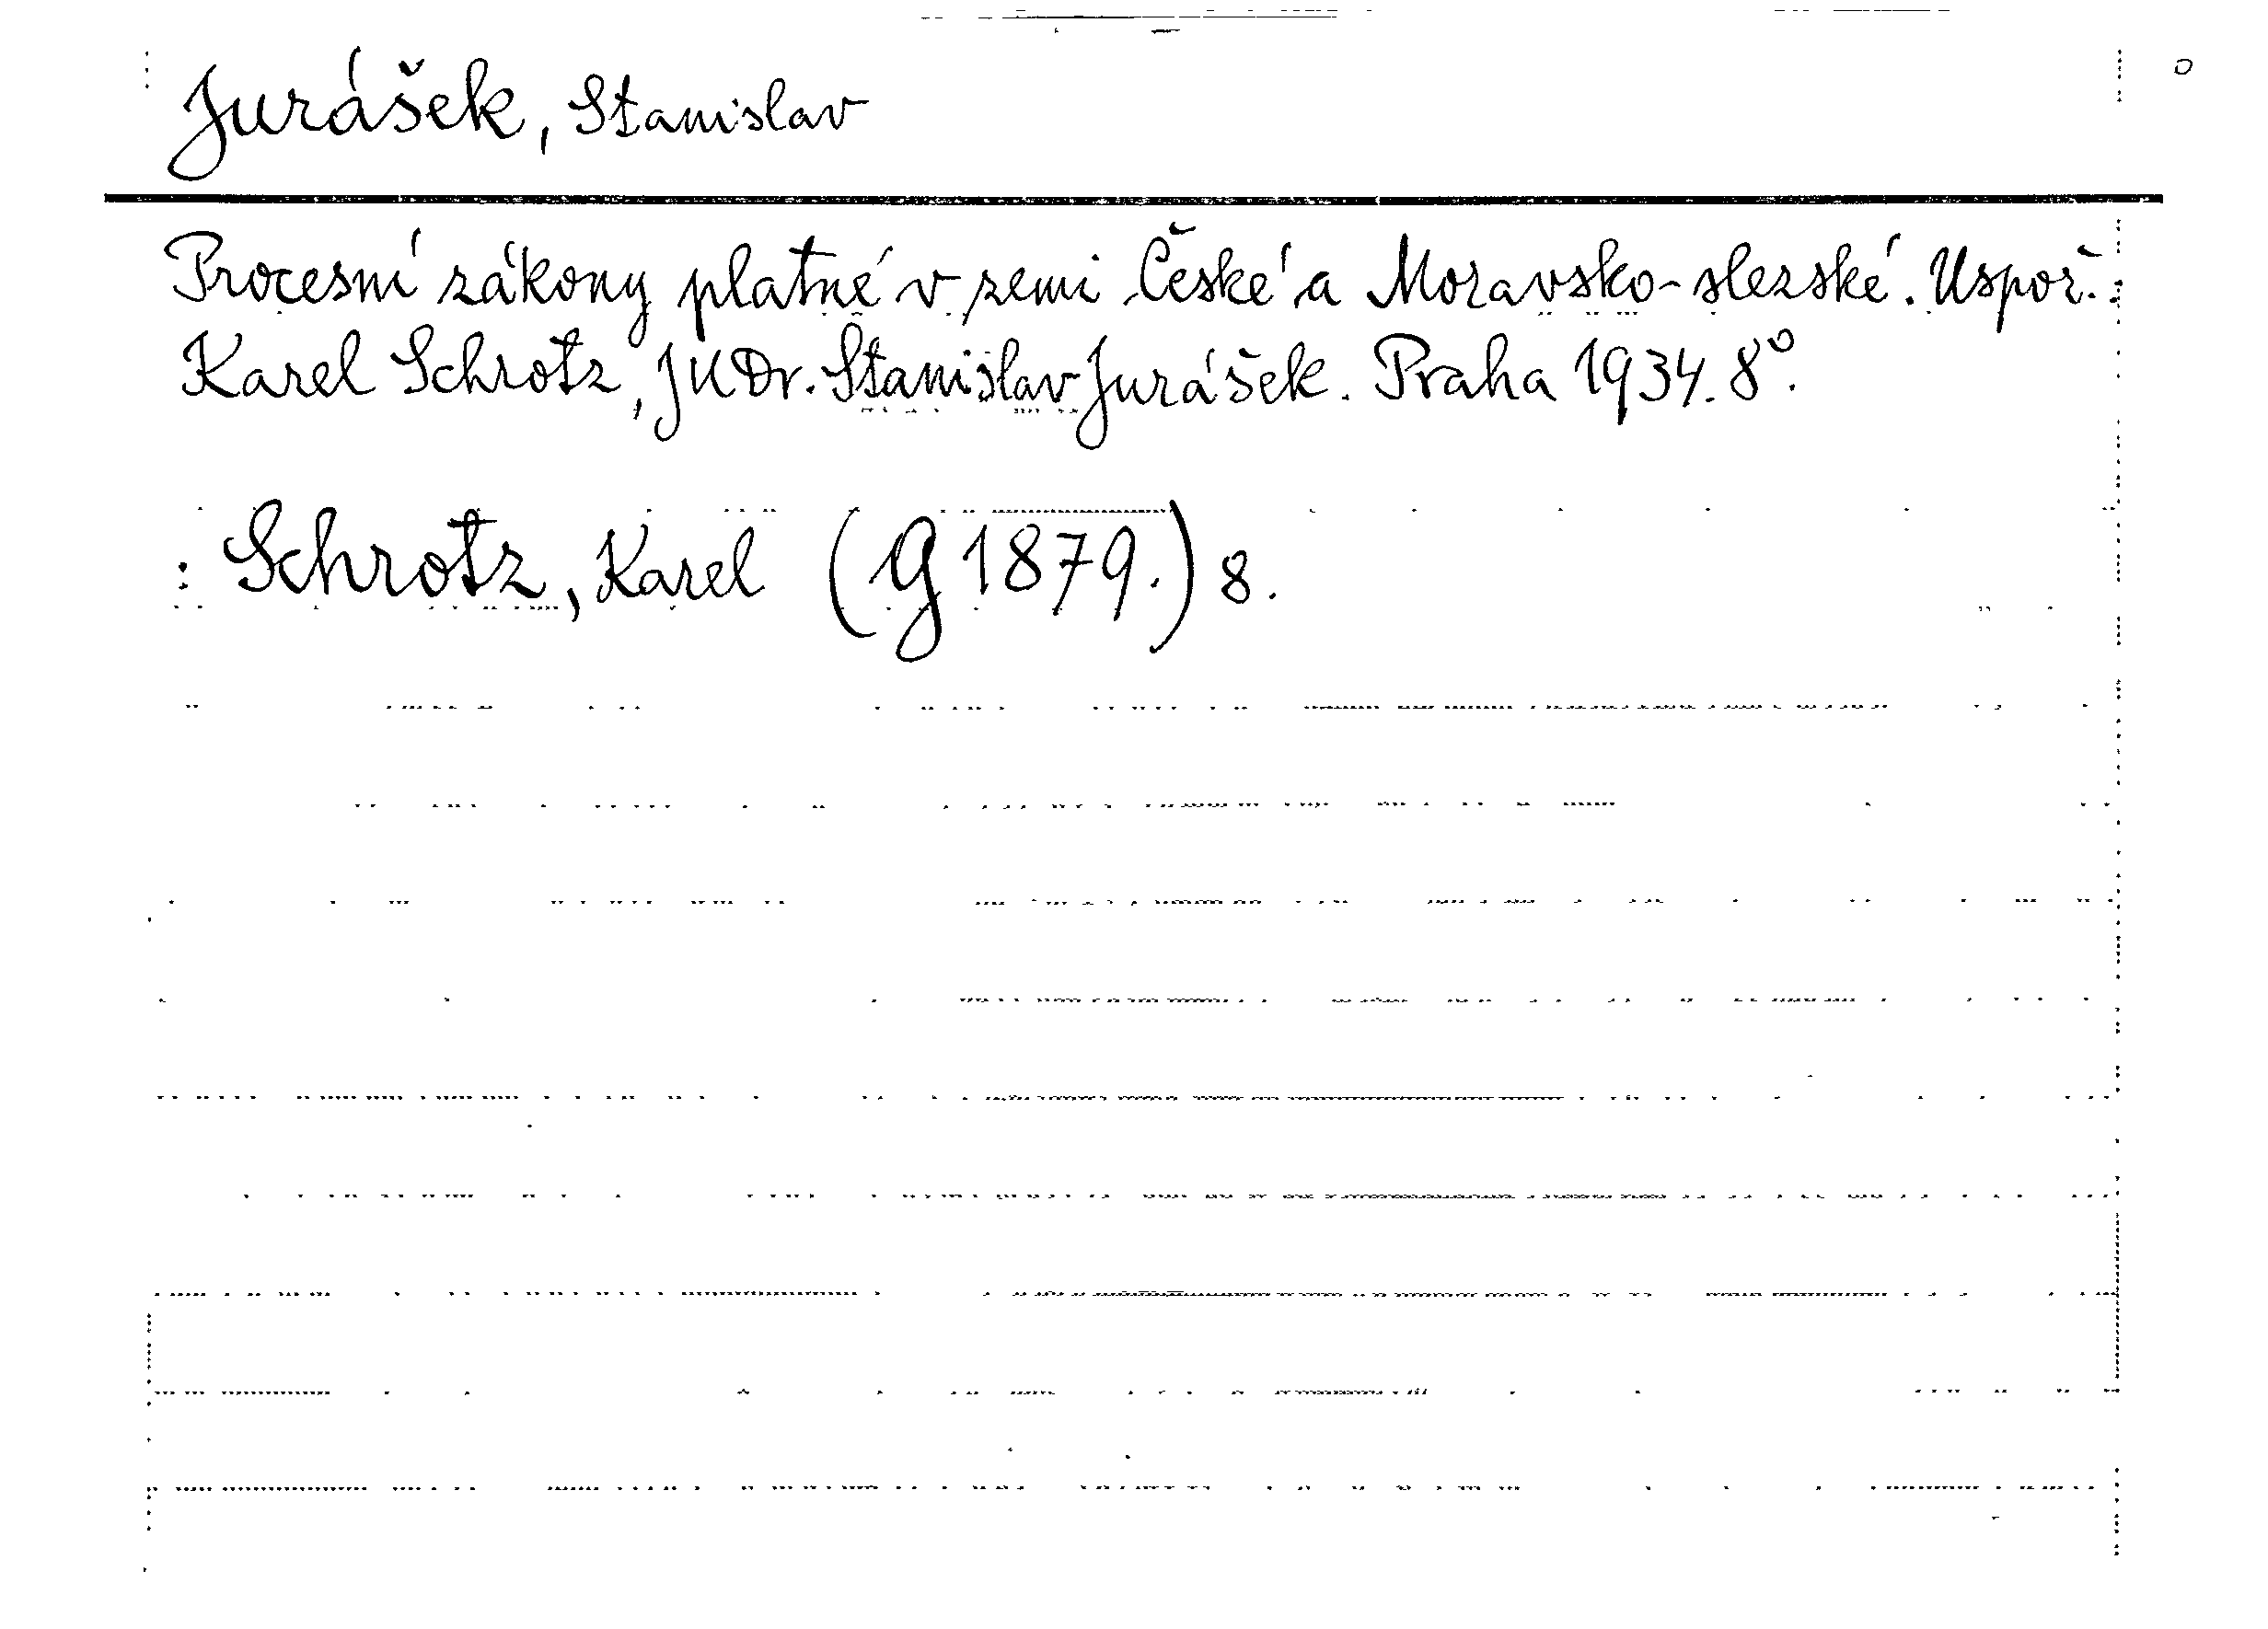 Jurášek, Stanislav
Procesní zákony platné v zemi České a Moravsko-slezské. Uspoř.
Karel Schrotz, JUDr. Stanislav Jurášek. Praha 1934. 8°.
: Schrotz, Karel (G 1879.) 8.